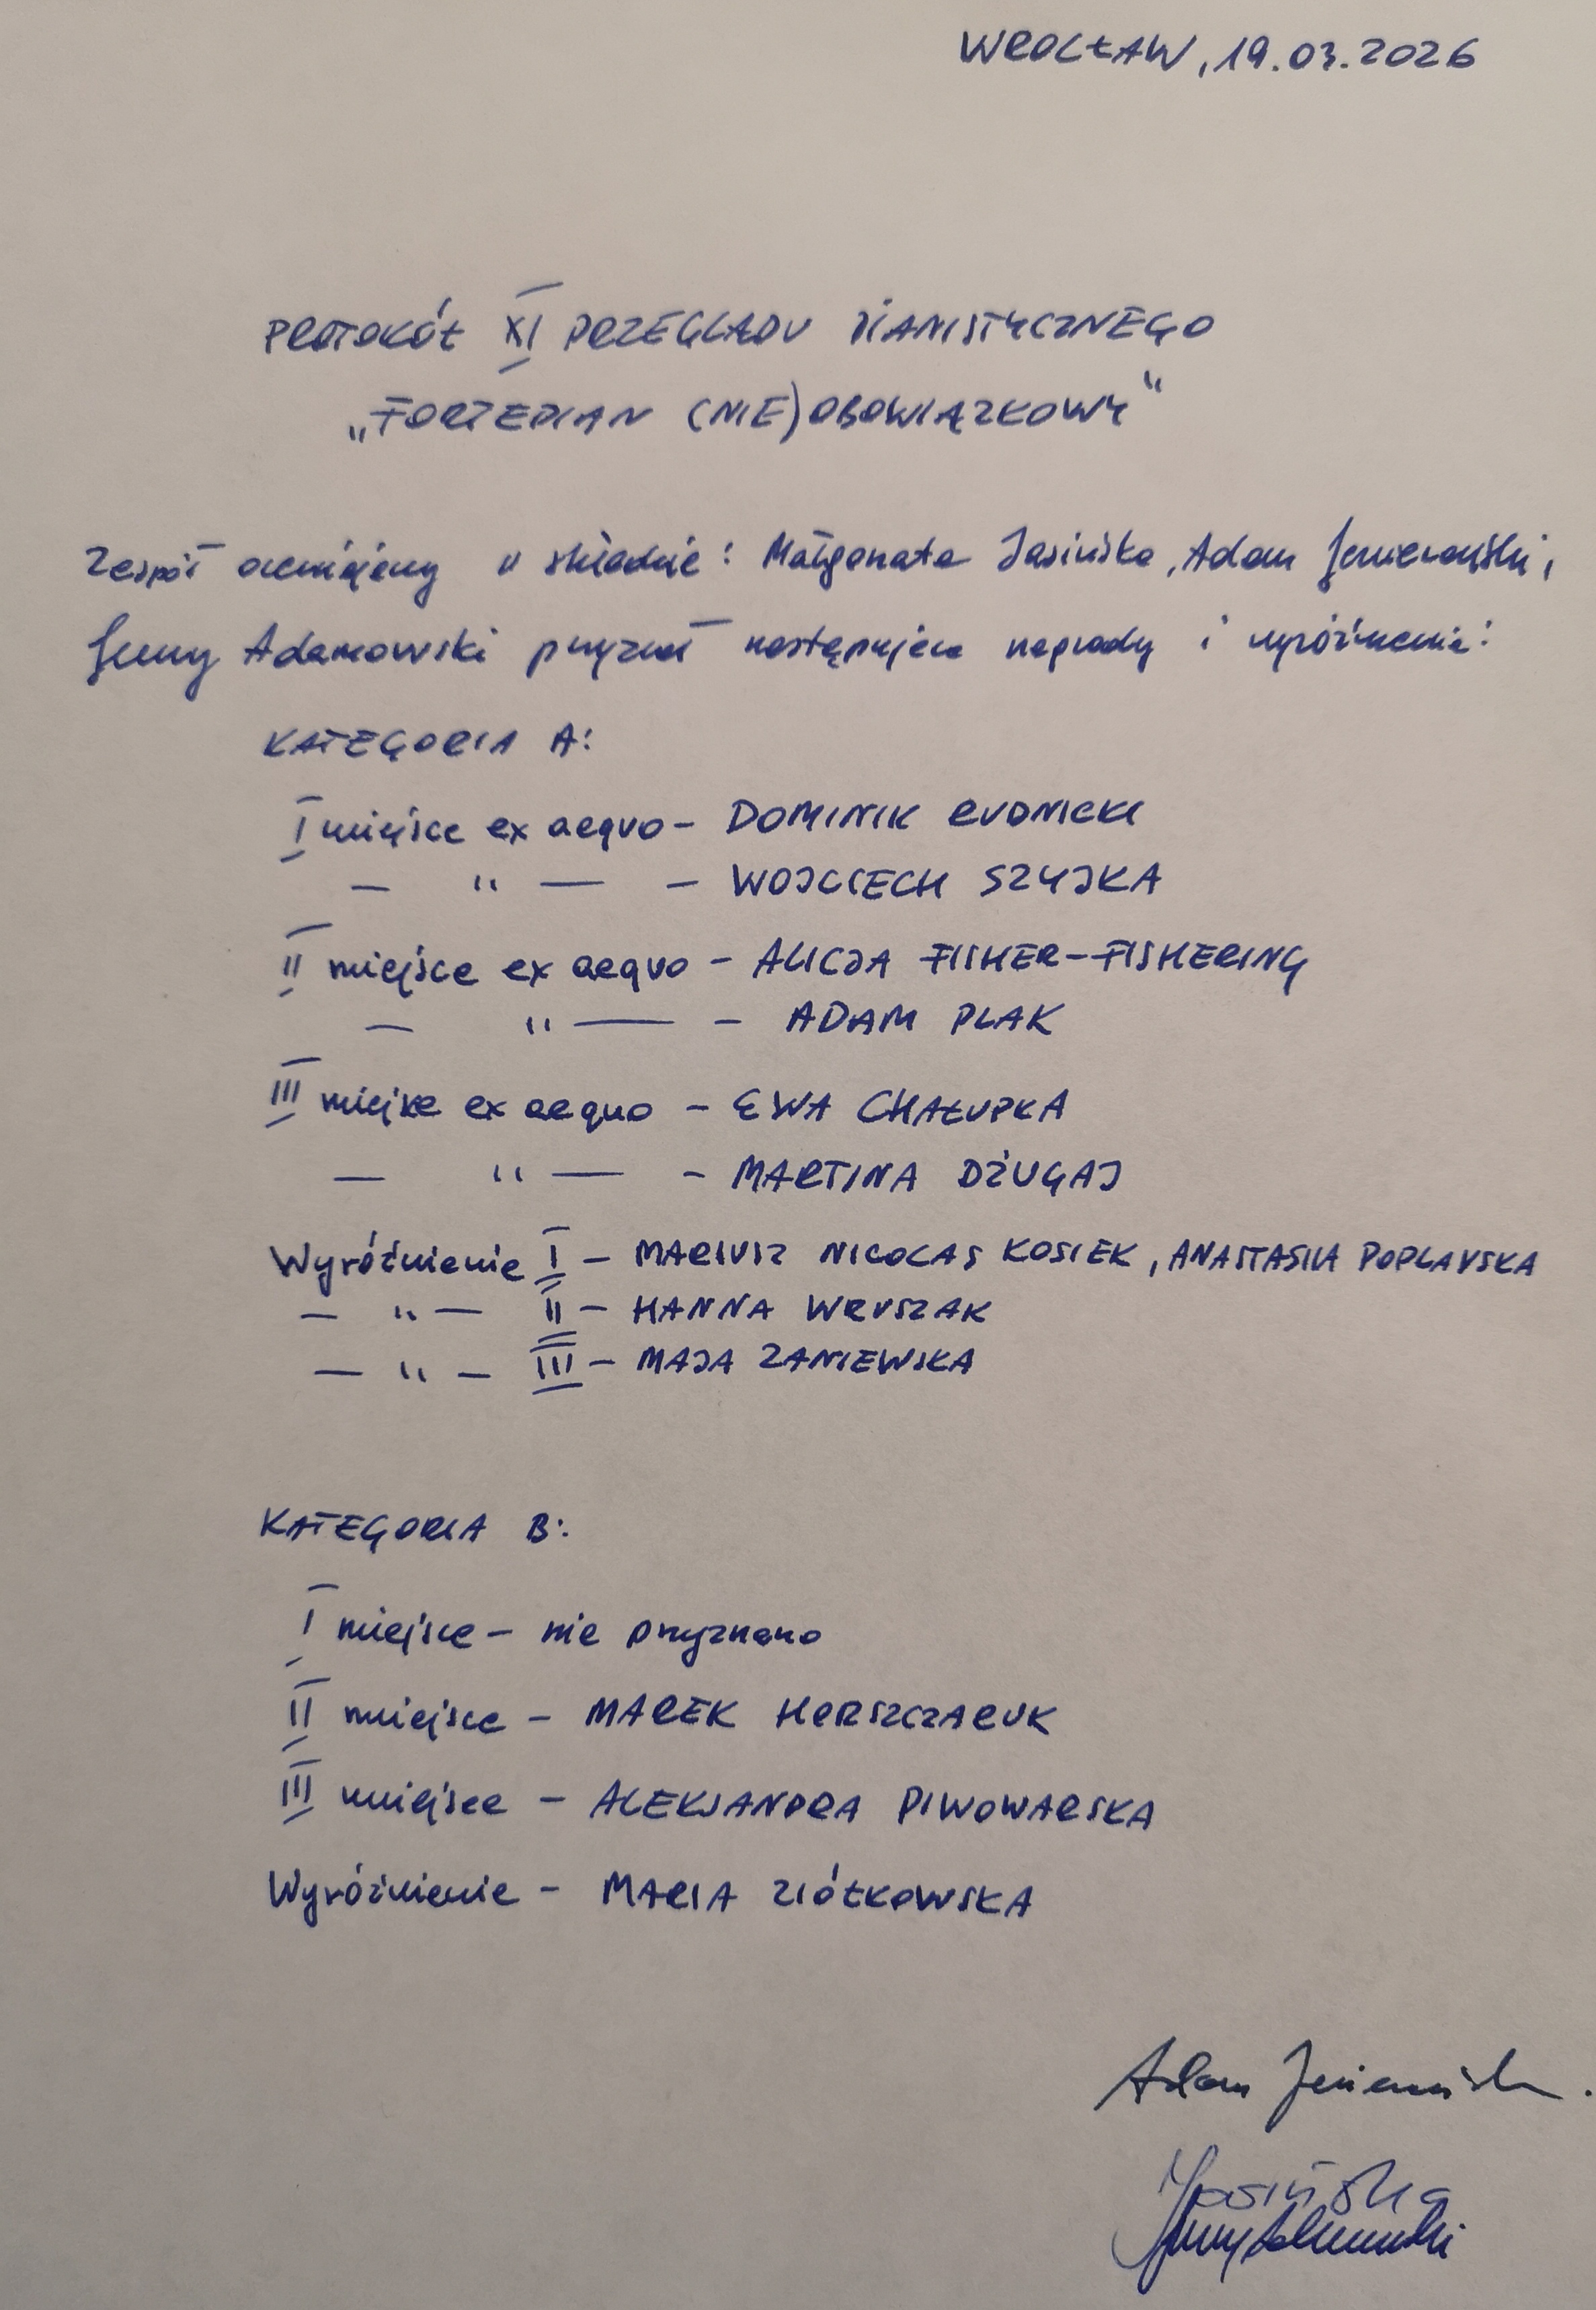 WROCŁAW, 19.03.2026
PROTOKÓŁ XI PRZEGLĄDU PIANISTYCZNEGO
„FORTEPIAN (NIE)OBOWIĄZKOWY"
Zespół oceniający w składzie: Małgorzata Jasińska, Adam
Jerzy Adamowski przyznał następujące nagrody i wyróżnienia:
KATEGORIA A:
I miejsce ex aequo - DOMINIK RUDNICKI
— " — - WOJCIECH SZYJKA
II miejsce ex aequo - ALICJA FISHER-FISHERING
— " — - ADAM PLAK
III miejsce ex aequo - EWA CHAŁUPKA
— " — - MARTINA DŻUGAJ
Wyróżnienie I - MARIUSZ NICOLAS KOSIEK, ANASTASIIA POPLAVSKA
— " — II - HANNA WRUSZAK
— " — III - MAJA ZANIEWSKA
KATEGORIA B:
I miejsce - nie przyznano
II miejsce - MAREK HERSZCZARUK
III miejsce - ALEKSANDRA PIWOWARSKA
Wyróżnienie - MARIA ZIÓŁKOWSKA
Adam
Jasińska